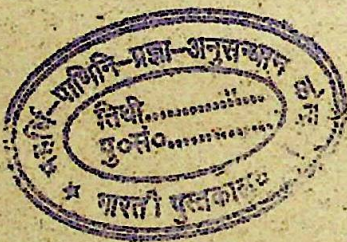 महर्षि-पाणिनि-प्रज्ञा-अनुसन्धान
तिथी....................
पु०सं०....................
भारती पुस्तकालय